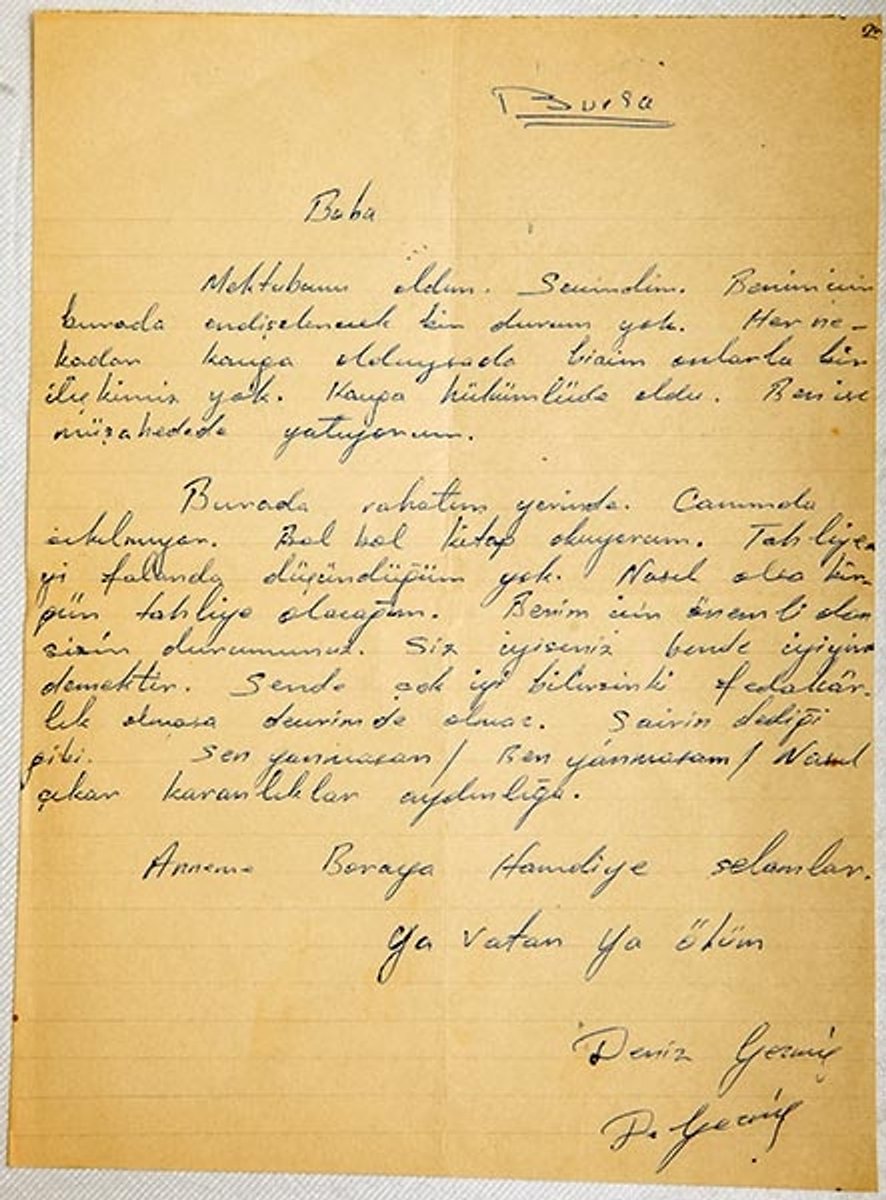 Bursa
Baba
Mektubunu aldım. Sevindim. Benim için
burada endişelenecek bir durum yok. Her ne-
kadar kavga olduysada bizim onlarla bir
ilişkimiz yok. Kavga hükümlüde oldu. Ben ise
müşahedede yatıyorum.
Burada rahatım yerinde. Canımda
sıkılmıyor. Bol bol kitap okuyorum. Tahliye-
yi falanda düşündüğüm yok. Nasıl olsa bir-
gün tahliye olacağım. Benim için önemli olan
sizin durumunuz. Siz iyiseniz bende iyiyim
demektir. Sende çok iyi bilirsinki fedakâr-
lık olmasa devrimde olmaz. Şairin dediği
gibi. Sen yanmasan / Ben yanmasam / Nasıl
çıkar karanlıklar aydınlığa.
Anneme Boraya Hamdiye selamlar.
Ya vatan Ya ölüm
Deniz Gezmiş
D. Gezmiş